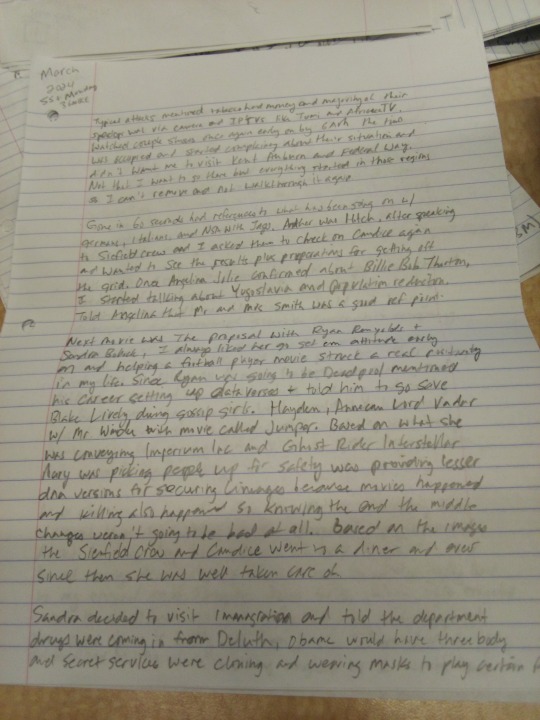 March
2024
Typical attacks mentioned tobacco had money and majority of their
speedop was via camera and IPTVs like Tumi and AfricanTV.
Watched couple shows once again early on by 6Ark the two
was accepted and started complaining about their situation and
didn't want me to visit Kent Auburn and Federal Way.
Not that I want to go there how everything started in those regions
so I can't remove and not walk through it again
Gone in 60 seconds had references what has been going on w/
Germans, Italians, and Now with Jags. Another was Hitch, after speaking
to Sienfield crew and I asked them to check on Candice again
and wanted to see the results plus preparations for getting off
the grid. Once Angelina Jolie confirmed about Billie Bob Thorton,
I started talking about Yugoslavia and Population reduction.
Told Angelina that Mr and Mrs Smith was a good ref point.
P2
Next movie was The Proposal with Ryan Renyolds +
Sandra Bullock, I always liked her go get em attitude early
on and helping a football player movie struck a real positivity
in my life. Since Ryan was going to be Deadpool mentioned
his career setting up dataverses + told him to go save
Blake Lively during gossip girls. Hayden, Annecan Lord Vader
w/ Mr Windu with movie called Jumper. Based on what she
was conveying Imperium Inc and Ghost Rider Interstellar
Navy was picking people up for safety was providing lesser
dna versions for securing lineages because movies happened
and killing also happened so knowing the end the middle
changes weren't going to be bad at all. Based on the images
the Sienfield Crew and Candice went in a diner and ever
since then she was well taken care of.
Sandra decided to visit immigration and told the department
drugs were coming in from Deluth, Obama would have three body
and secret services were cloning and wearing masks to play certain